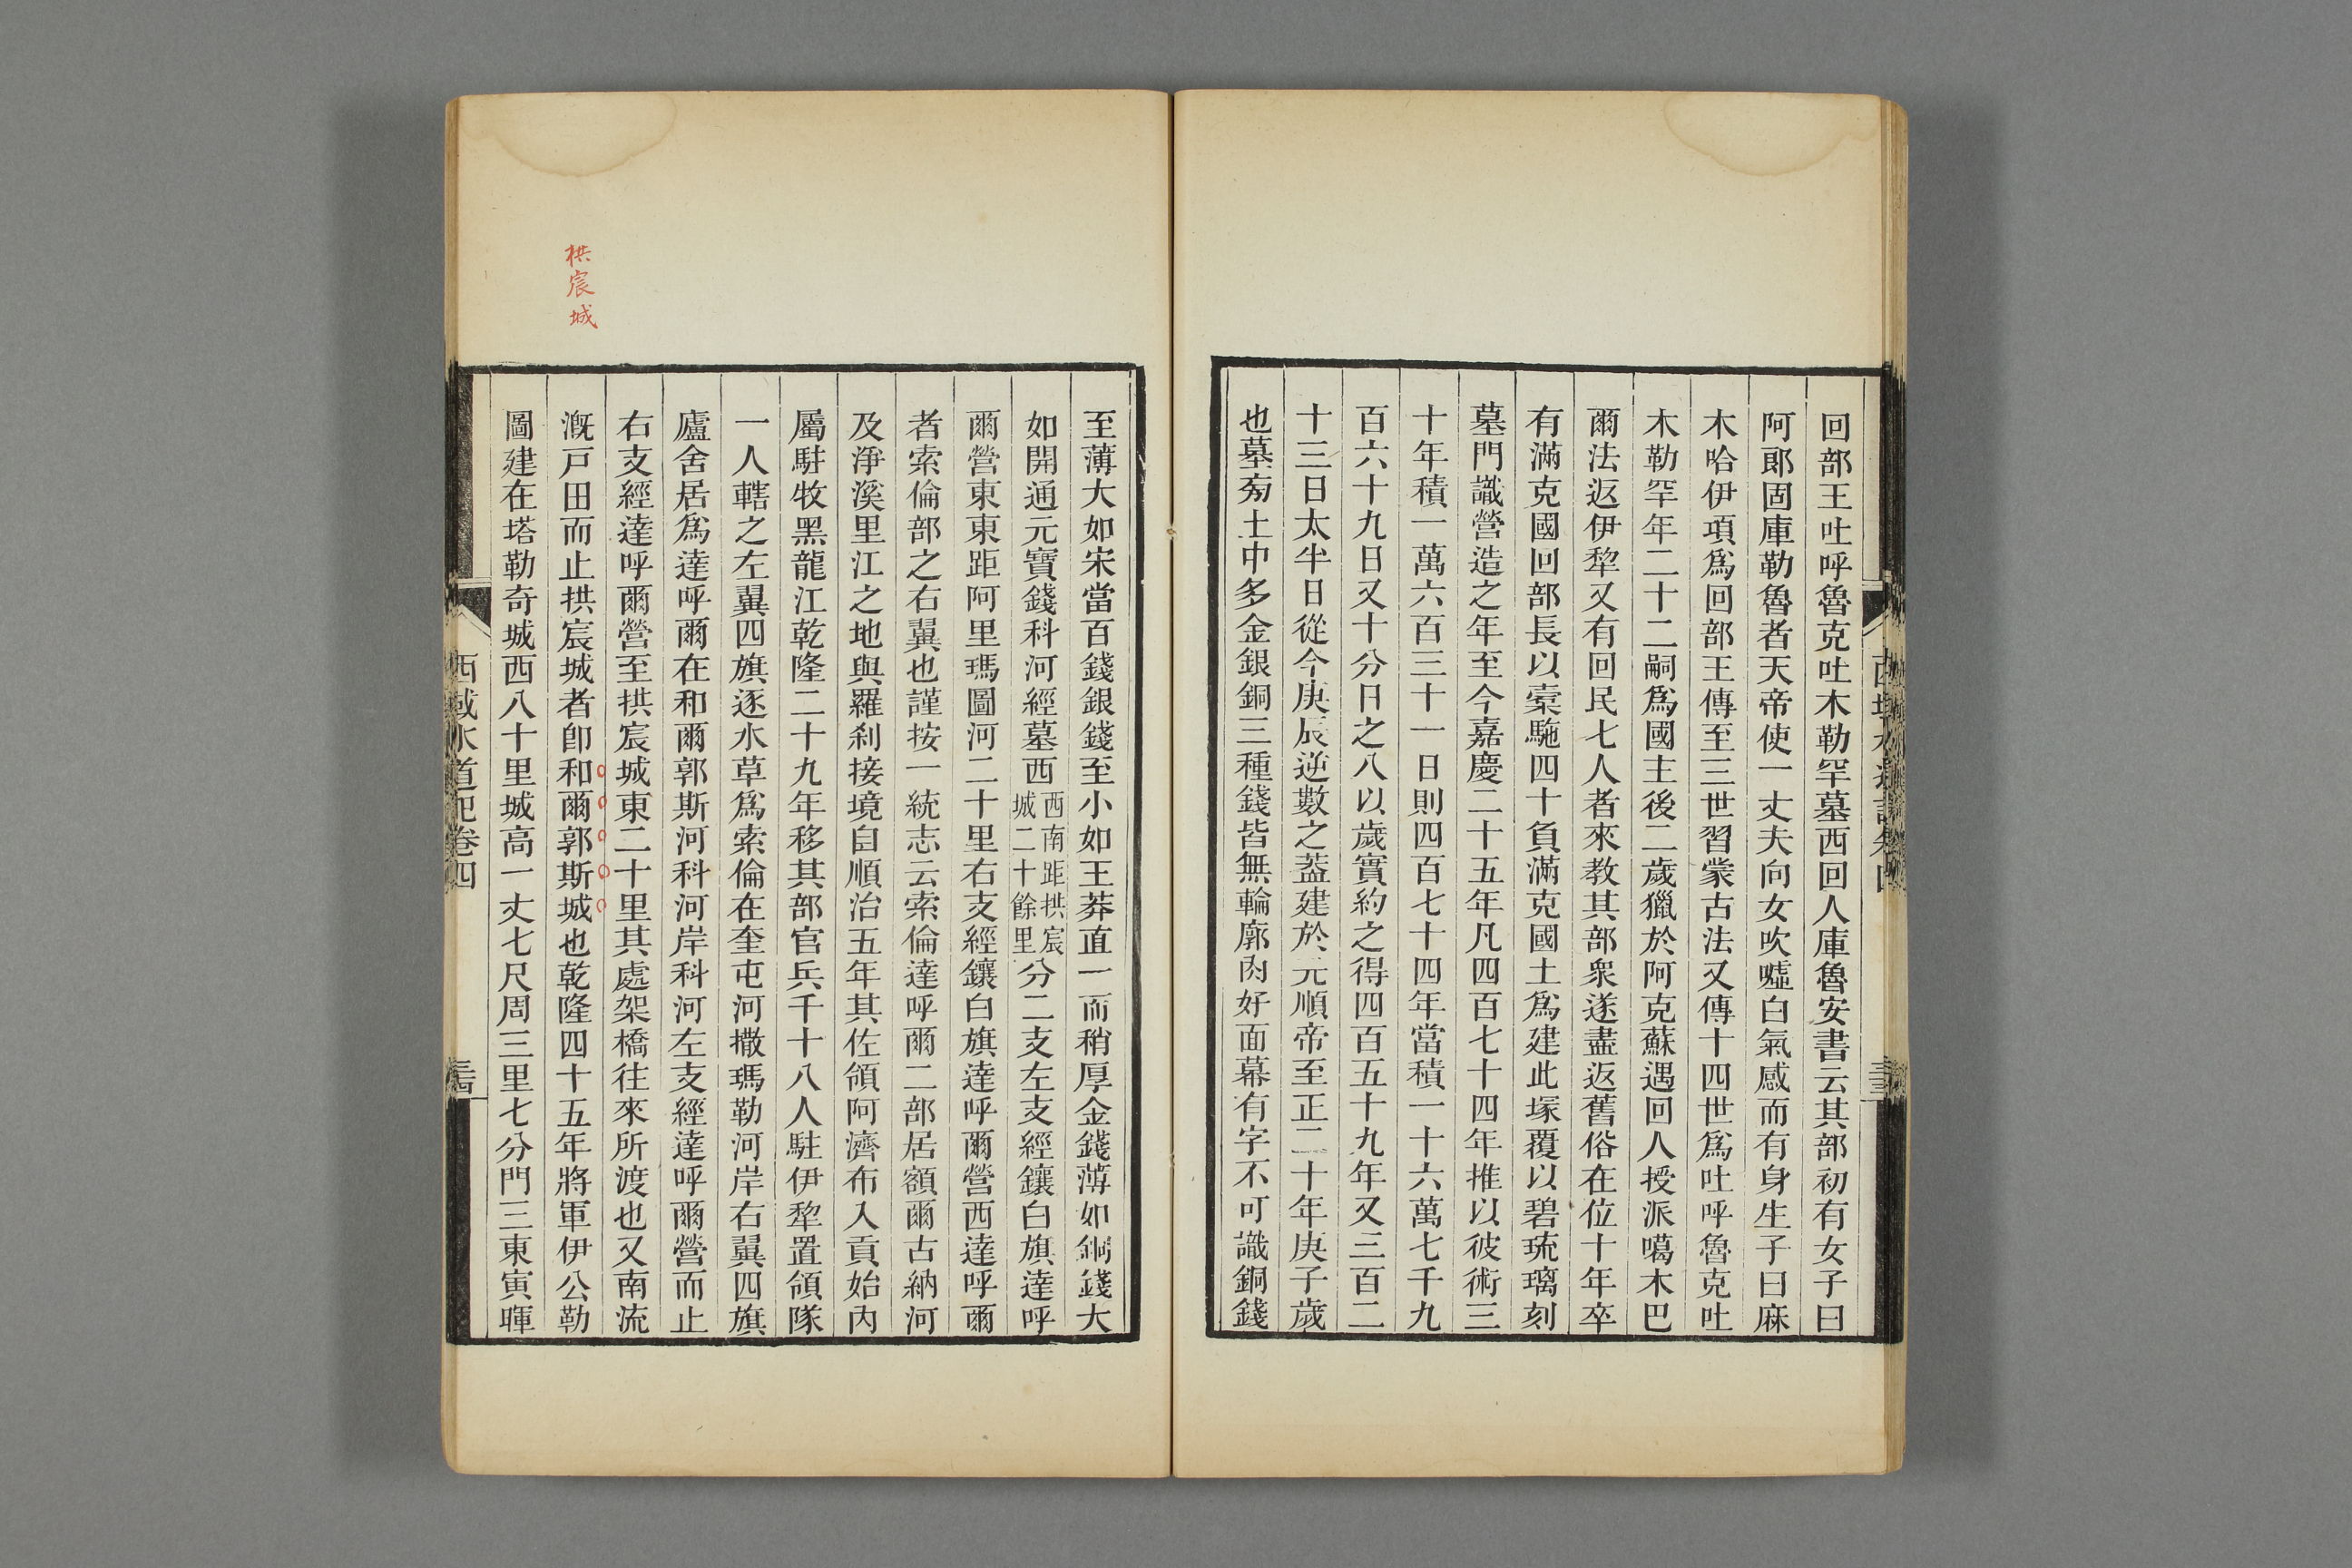 回部王吐呼魯克吐木勒罕墓西回人庫魯安書云其部初有女子曰
阿郎固庫勒魯者天帝使一丈夫向女吹噓白氣感而有身生子曰麻
木哈伊項爲回部王傳至三世習蒙古法又傳十四世爲吐呼魯克吐
木勒罕年二十二嗣爲國主後二歲獵於阿克蘇遇回人授派噶木巴
爾法返伊犂又有回民七人者來教其部衆遂盡返舊俗在位十年卒
有滿克國回部長以橐駞四十負滿克國土爲建此塚覆以碧琉璃刻
墓門識營造之年至今嘉慶二十五年凡四百七十四年推以彼術三
十年積一萬六百三十一日則四百七十四年當積一十六萬七千九
百六十九日又十分日之八以歲實約之得四百五十九年又三百二
十三日太半日從今庚辰逆數之蓋建於元順帝至正二十年庚子歲
也墓旁土中多金銀銅三種錢皆無輪廓肉好面幕有字不可識銅錢
至薄大如宋當百錢銀錢至小如王莽直一而稍厚金錢薄如銅錢大
如開通元寶錢科河經墓西西南距拱宸城二十餘里分二支左支經鑲白旗達呼
爾營東東距阿里瑪圖河二十里右支經鑲白旗達呼爾營西達呼爾
者索倫部之右翼也謹按一統志云索倫達呼爾二部居額爾古納河
及淨溪里江之地與羅刹接境自順治五年其佐領阿濟布入貢始內
屬駐牧黑龍江乾隆二十九年移其部官兵千十八人駐伊犂置領隊
一人轄之左翼四旗逐水草爲索倫在奎屯河撒瑪勒河岸右翼四旗
廬舍居爲達呼爾在和爾郭斯河科河岸科河左支經達呼爾營而止
右支經達呼爾營至拱宸城東二十里其處架橋往來所渡也又南流
漑戸田而止拱宸城者卽和爾郭斯城也乾隆四十五年將軍伊公勒
圖建在塔勒奇城西八十里城高一丈七尺周三里七分門三東寅暉
西域水道記卷四
拱宸城